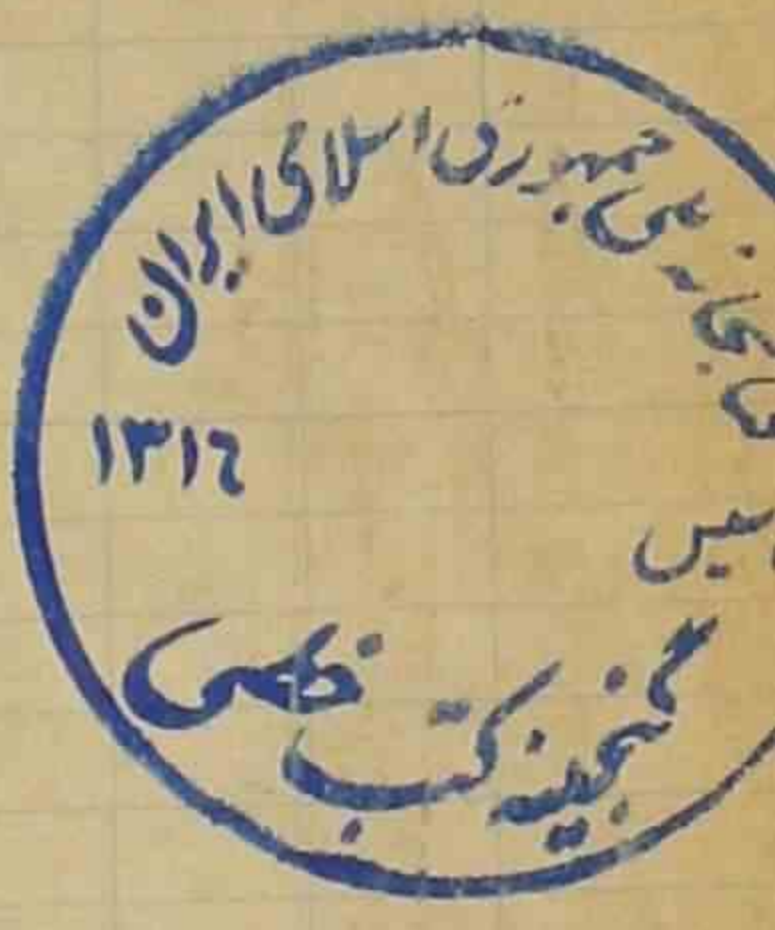 کتابخانه ملی جمهوری اسلامی ایران
۱۳۱٦
گنجینه کتب خطی